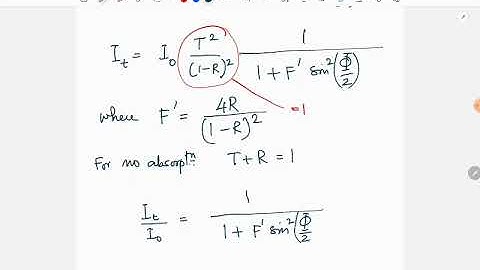 I_t = I_o T²/(1-R)² 1/(1 + F' sin²(Φ/2))
= 1
where F' = 4R/(1-R)²
For no absorpt^n T+R = 1
I_t/I_o = 1/(1 + F' sin²(Φ/2